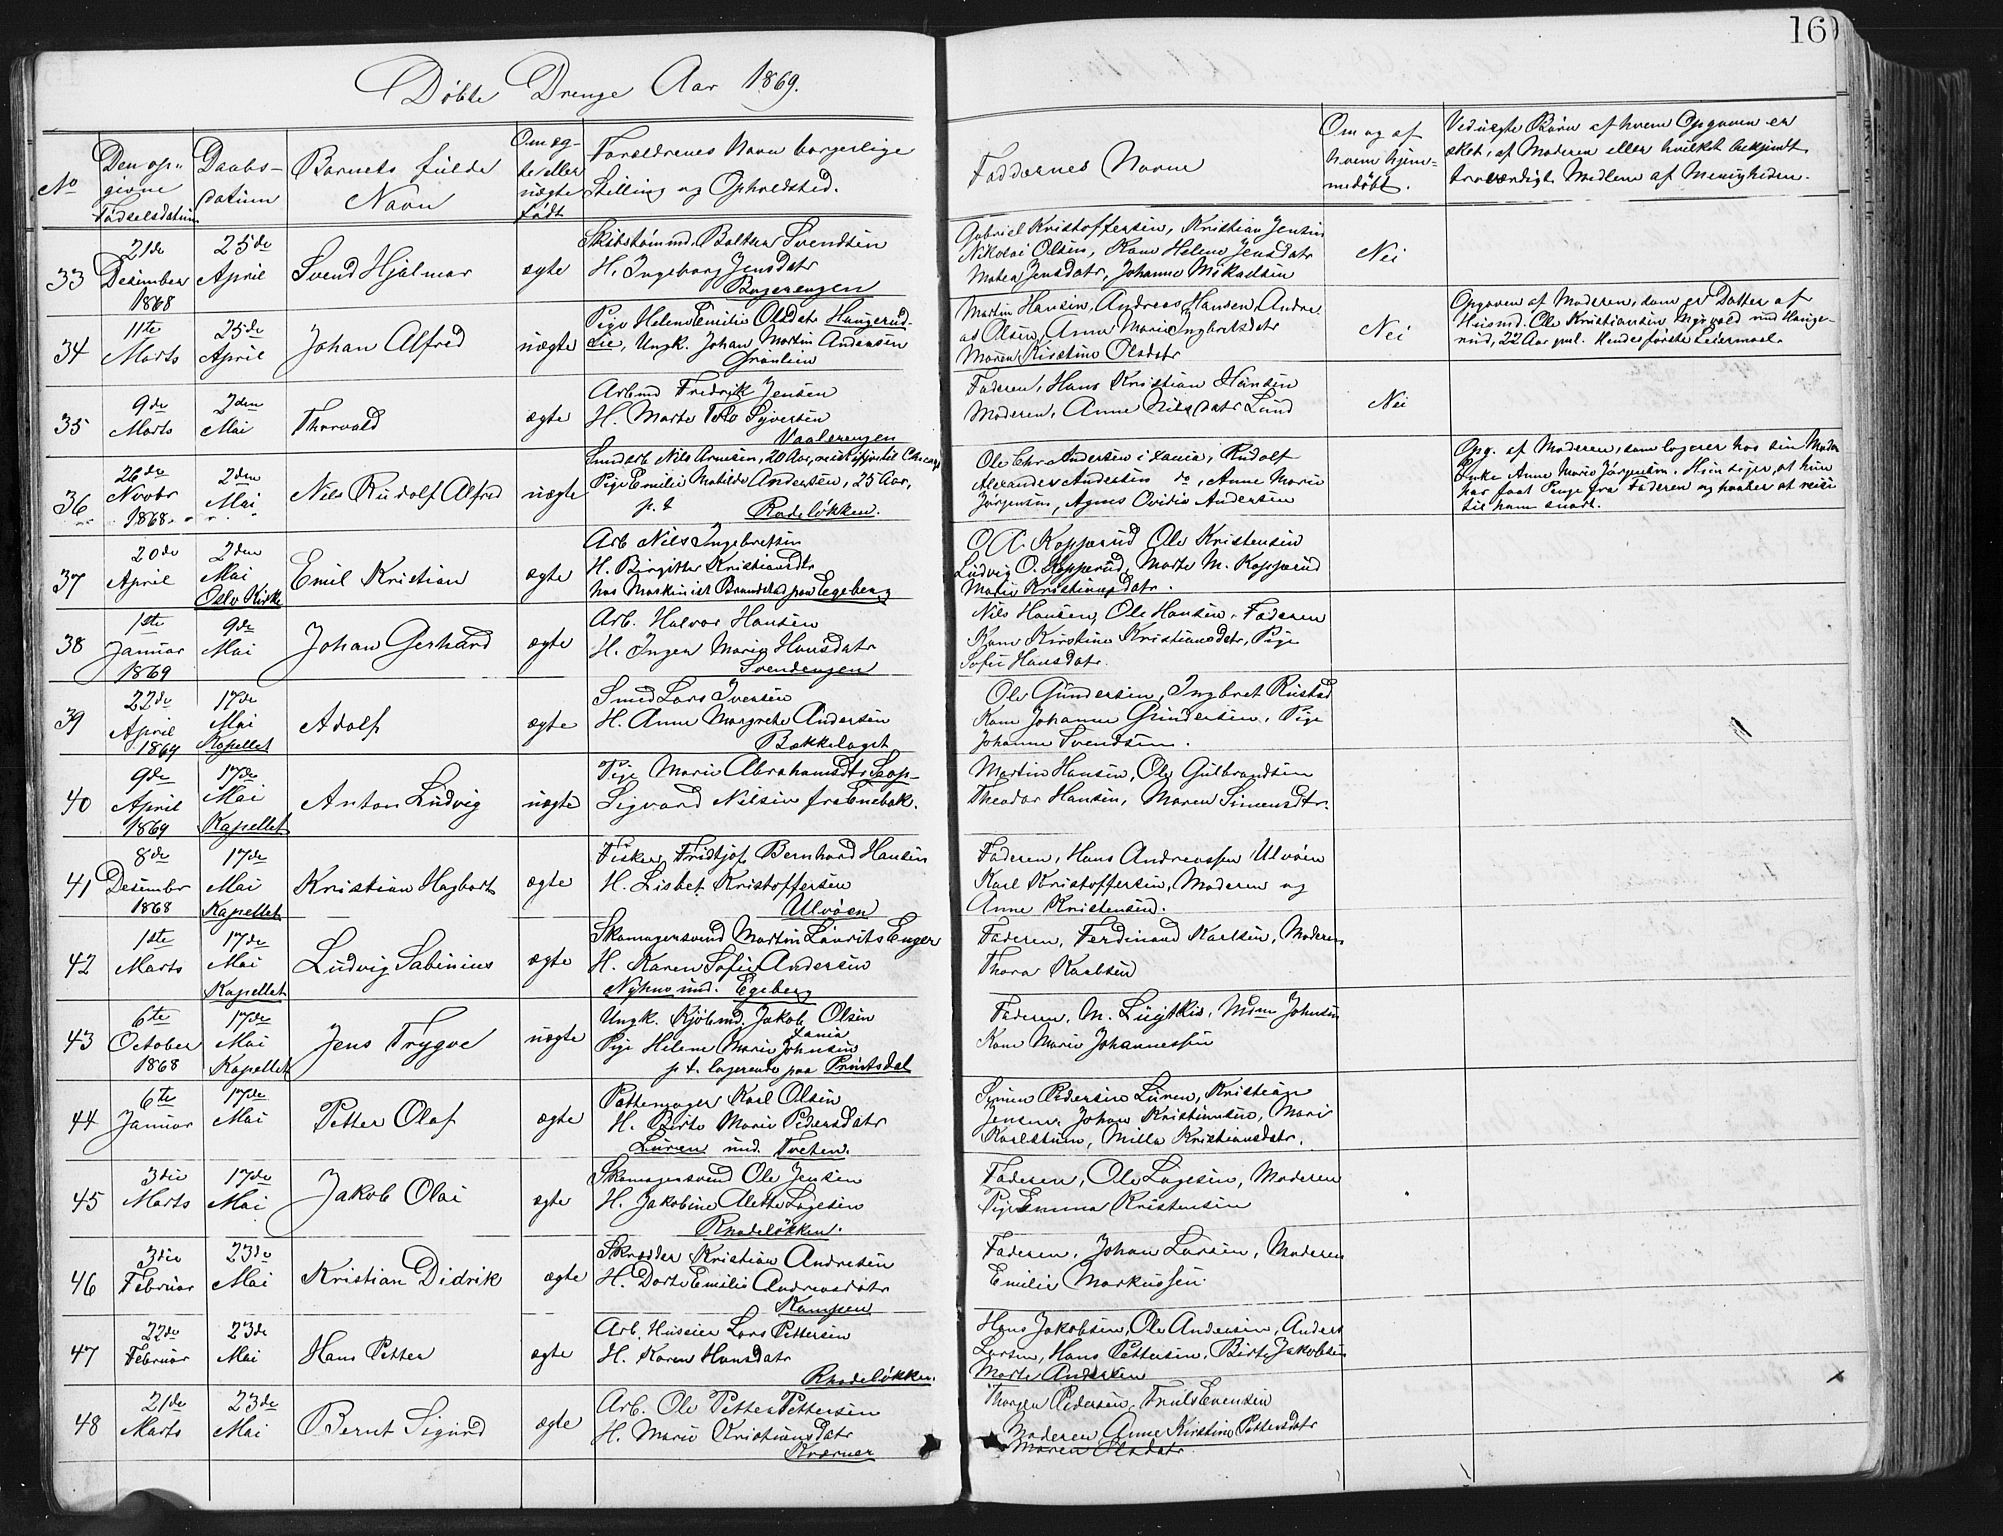 16
Døbte Drenge Aar 1869.
No
Den op-
givne
Fødselsdatum
Daabs-
datum
Barnets fulde
Navn
Om æg-
te eller
uægte
født
Forældrenes Navn borgerlige
Stilling og Opholdsted.
Faddernes Navne
Om og af
hvem hjem-
medøbt.
Ved uægte Børn af hvem Opgaven er
sket, af Moderen eller hvilket bekjendt
troværdigt Medlem af Menigheden.
33
21de
Desember
1868
25de
April
Svend Hjalmar
ægte
Skibstømmd. Baltser Svendsen
H. Ingeborg Jensdatr
Bagerengen
Gabriel Kristoffersen, Kristian Jensen
Nikolai Olsen, Kone Helene Jensdatr
Mathea Jensdatr, Johanne Mikaelsen
Nei
34
11te
Marts
25de
April
Johan Alfred
uægte
Pige Helene Emilie Olsdatr Haugerud-
eie, Ungk. Johan Martin Andersen
Grønlien
Martin Hansen, Andreas Hansen, Andre
as Olsen, Anne Marie Ingbretsdatr
Maren Kirstine Olsdatr
Nei
Opgaven af Moderen, som er Datter af
Husmd. Ole Kristiansen und Hauge-
rud, 22 Aar gml. Hendes første Leiermaal.
35
9de
Marts
2den
Mai
Thorvald
ægte
Arbmd Fredrik Jensen
H. Marte Syversen
Vaalerengen
Faderen, Hans Kristian Hansen
Moderen, Anne Nilsdatr Lund
Nei
36
26de
Novbr
1868
2den
Mai
Nils Rudolf Alfred
uægte
Smedarb Nils Arnesen, 20 Aar, reist til Chicago
Pige Emilie Matilde Andersen, 25 Aar,
p. t. Rodeløkken.
Ole Chr Andersen i Xania, Rudolf
Alexander Andersen do, Anne Marie
Jørgensen, Agnes Ovidia Andersen
Opg. af Moderen, som logerer hos sin Moder
Enke Anne Marie Jørgensen. Hun siger, at hun
har faat Penge fra Faderen og haaber at reise
til ham snart.
37
20de
April
2den
Mai
Oslo Kirke
Emil Kristian
ægte
Arb Nils Ingebretsen
H. Birgitte Kristiansdtr
hos Maskinist Brandstad paa Egeberg
O. A. Kopperud, Ole Kristensen
Ludvig O. Kopperud, Marte M. Kopperud
Marie Kristiansdatr.
38
1ste
Januar
1869
9de
Mai
Johan Gerhard
ægte
Arb. Halvor Hansen
H. Inger Marie Hansdatr
Svendengen
Nils Hansen, Ole Hansen, Faderen
Kone Kirstine Kristiansdatr, Pige
Sofie Hansdatr.
39
22de
April
1869
17de
Mai
Kapellet
Adolf
ægte
Smed Lars Iversen
H. Anne Margrete Andersen
Bækkelaget
Ole Gundersen, Ingbret Rustad
Kone Johanne Gundersen, Pige
Johanne Svendsen.
40
9de
April
1869
17de
Mai
Kapellet
Anton Ludvig
uægte
Pige Marie Abrahamsdtr
Sigvard Nilsen fra Enebak.
Martin Hansen, Ole Gulbrandsen
Theodor Hansen, Maren Simensdtr.
41
8de
Desembr
1868
17de
Mai
Kapellet
Kristian Hagbart
ægte
Fisker Fridtjof Bernhard Hansen
H. Lisbet Kristoffersen
Ulvøen
Faderen, Hans Andreassen Ulvøen
Karl Kristoffersen, Moderen og
Anne Kristensen.
42
1ste
Marts
17de
Mai
Kapellet
Ludvig Sabinius
ægte
Skomagersvend Martin Laurits Enger
H. Karen Sofie Andersen
Nyhus und. Egeberg
Faderen, Ferdinand Karlsen, Moderen
Thora Karlsen
43
6te
October
1868
17de
Mai
Kapellet
Jens Trygve
uægte
Ungk. Kjøbmd. Jakob Olsen
Xania
Pige Helene Marie Johnsen
p t. logerende paa Prinsdal
Faderen, M. Johnsen
Kone Marie Johannessen
44
6te
Januar
17de
Mai
Petter Olaf
ægte
Pottemager Karl Olsen
H. Birte Marie Pedersdatr
Luren und. Tveten.
Simen Pedersen Luren, Kristian
Jensen, Johan Kristiansen, Mari
Karlstum, Milla Kristiansdatr.
45
3die
Marts
17de
Mai
Jakob Olai
ægte
Skomagersvend Ole Jensen
H. Jakobine Alette Lagesen
Rhodeløkken.
Faderen, Ole Lagesen, Moderen
Pige Emma Kristensen
46
3die
Februar
23de
Mai
Kristian Didrik
ægte
Skrædder Kristian Andresen
H. Dorte Emilie Andreasdatr
Kampen
Faderen, Johan Larsen, Moderen
Emilie Markussen.
47
22de
Februar
23de
Mai
Hans Petter
ægte
Arb. Huseier Lars Pettersen
H. Karen Hansdatr
Rhodeløkken.
Hans Jakobsen, Ole Andersen, Anders
Larsen, Hans Pettersen, Birte Jakobsen
Marte Andersen
48
21de
Marts
23de
Mai
Bernt Sigurd
ægte
Arb. Ole Petter Pettersen
H. Marie Kristiansdatr
Kværner
Thorger Pedersen, Truls Evensen
Moderen, Anne Kirstine Pettersdatr
Maren Olsdatr.